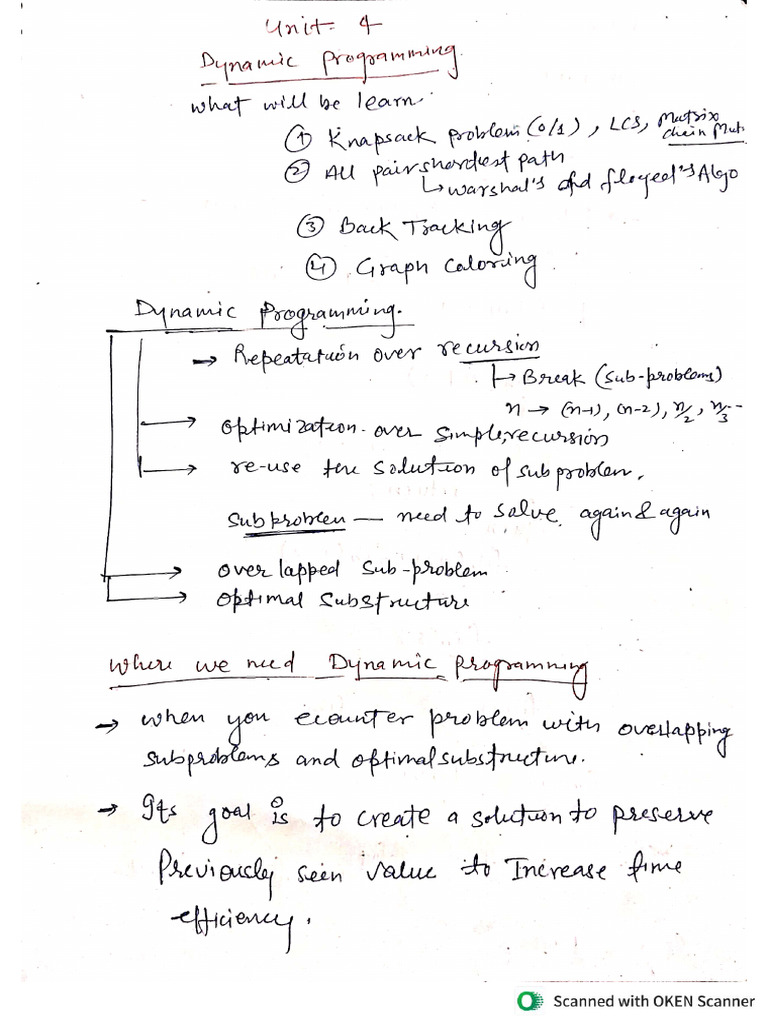 Unit- 4
Dynamic Programming.
what will be learn.
① Knapsack problem (0/1), LCS, Matrix chain Mut.
② All pair shordiest path
↳ warshal's and floyed's Algo
③ Back Tracking
④ Graph Caloring.
Dynamic Programming.
→ Repeatation over recursion
↳ Break (sub-problems)
n → (n-1), (n-2), n/2, n/3 --
→ optimization over simple recursion
→ re-use the solution of subproblem.
Subproblem — need to solve again & again
→ overlapped sub-problem
→ optimal substructure
where we need Dynamic programming
→ when you ecounter problem with overlapping
subproblems and optimal substructure.
→ Its goal is to create a solution to preserve
Previously seen value to Increase time
efficiency.
Scanned with OKEN Scanner